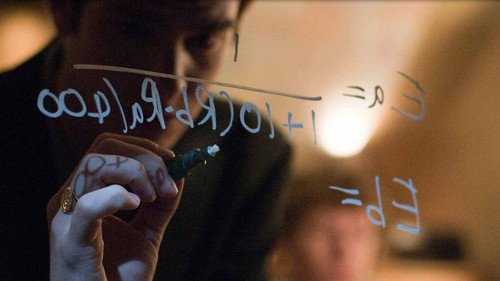 1
Ea =
1+10(Rb-Ra)400
Eb =